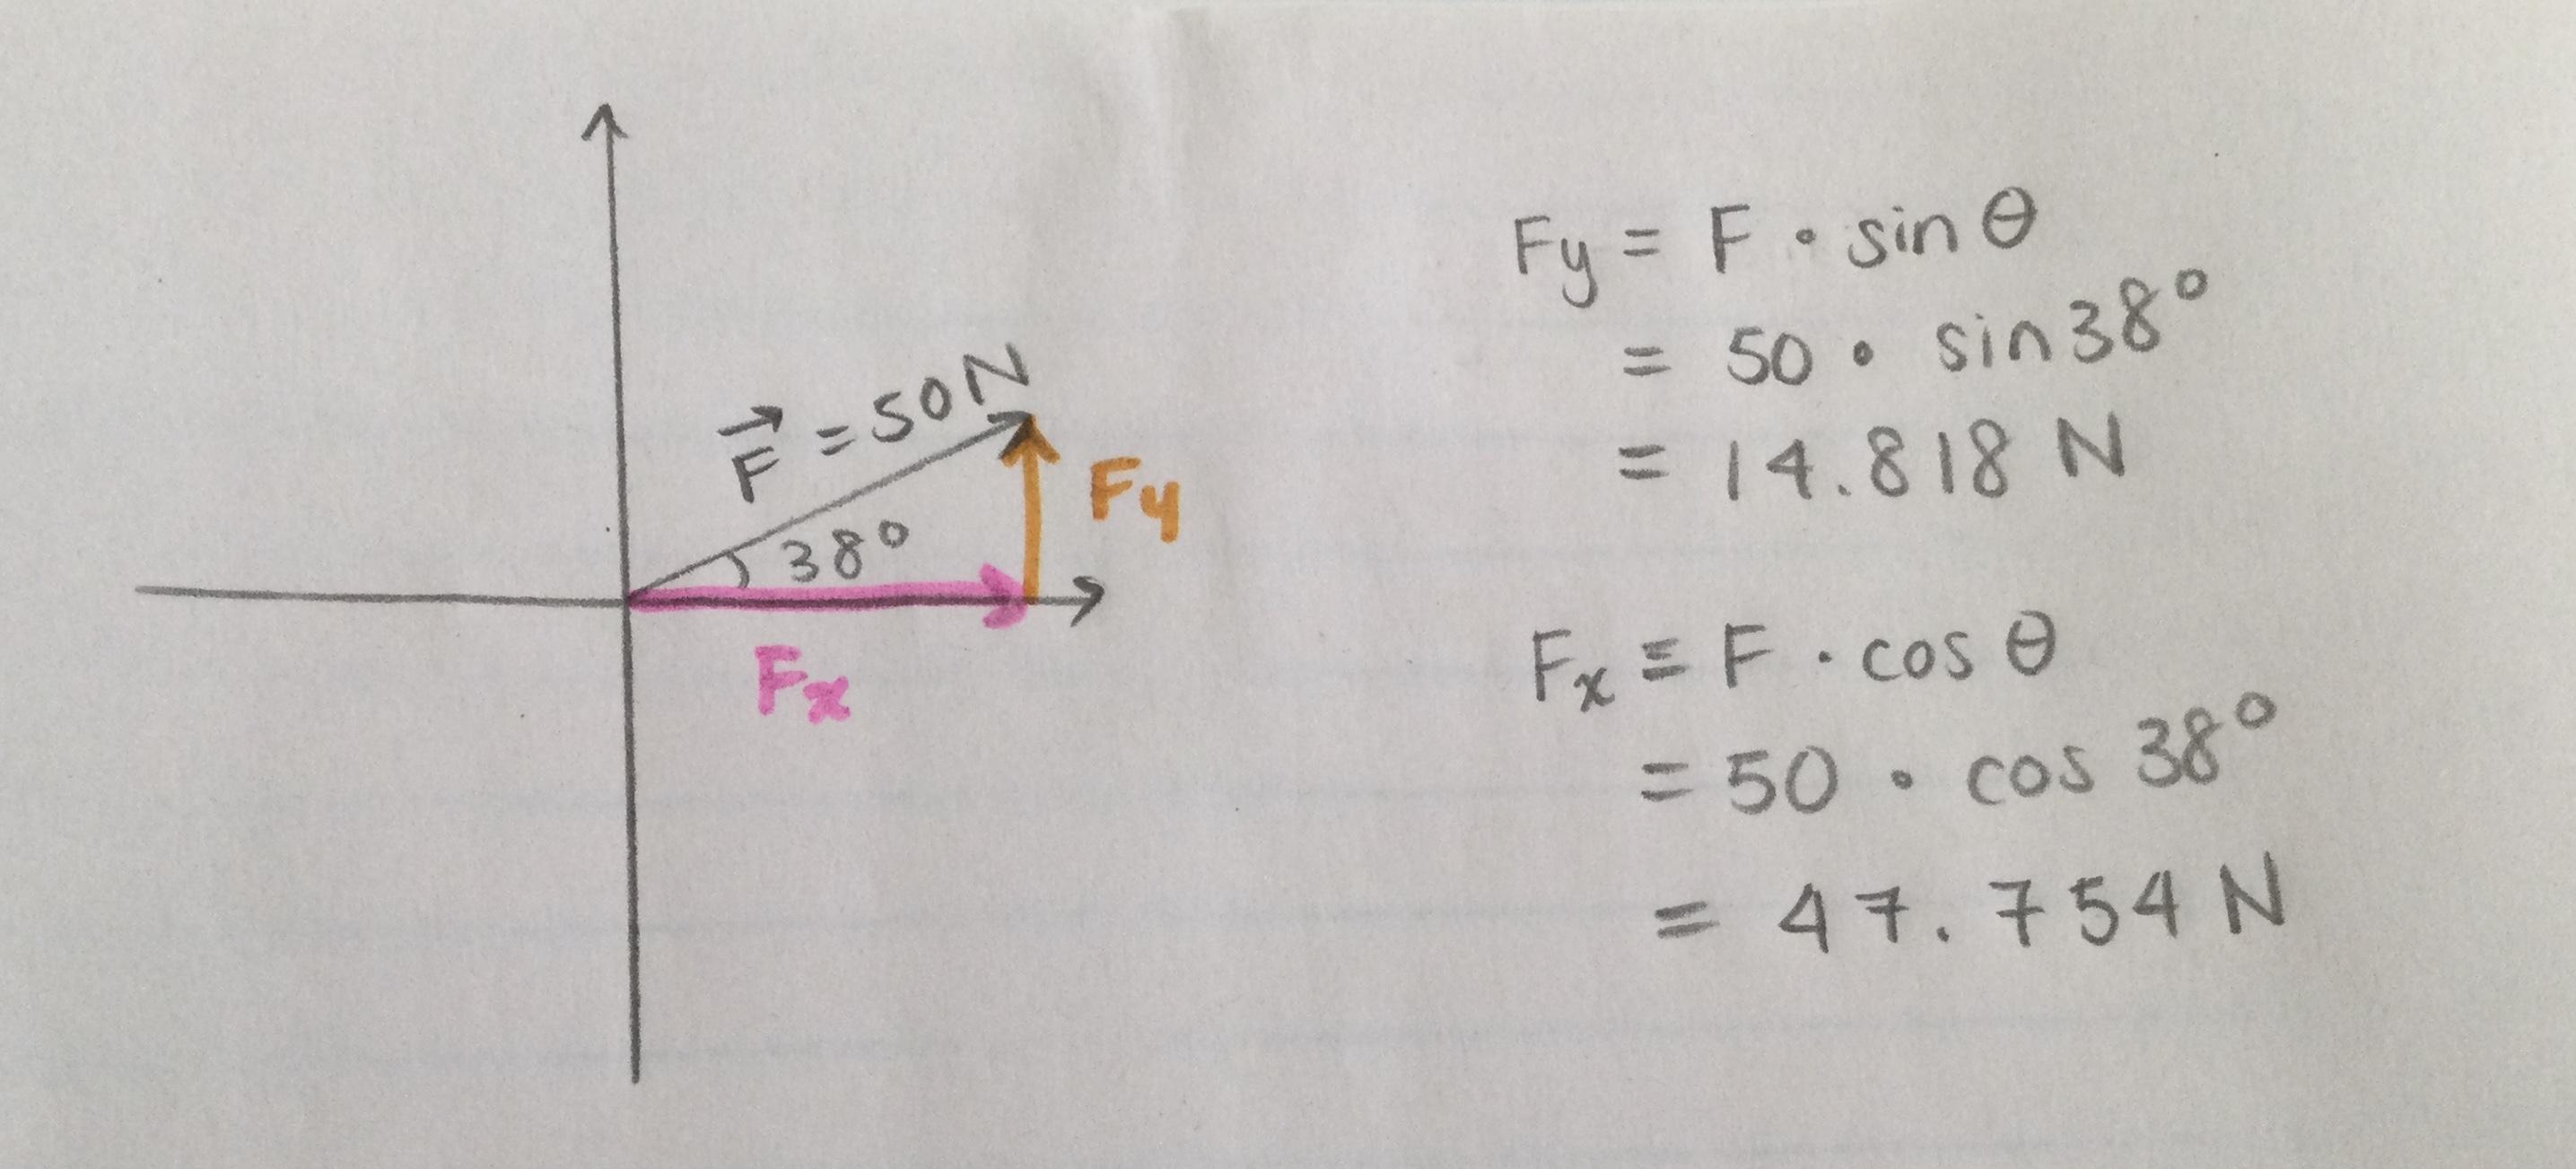 F⃗ = 50N
38°
Fy
Fx
Fy = F · sin θ
= 50 · sin 38°
= 14.818 N
Fx = F · cos θ
= 50 · cos 38°
= 47.754 N